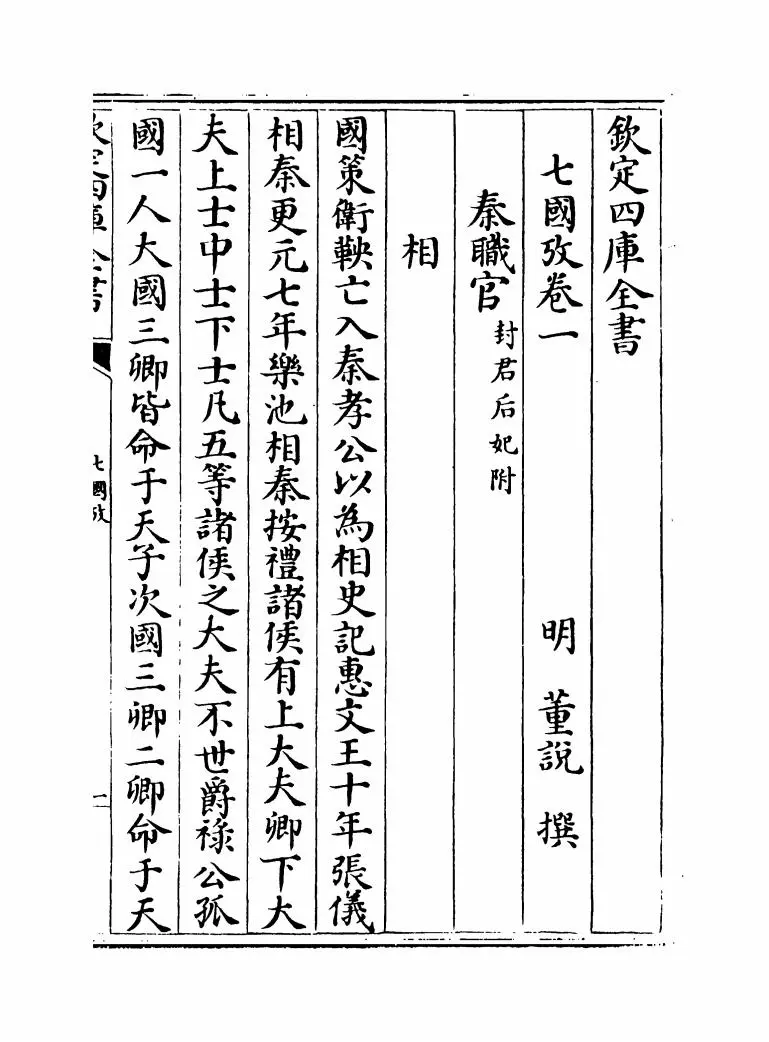 欽定四庫全書
七國攷卷一　明　董說　撰
秦職官 封君后妃附
相
國策衛鞅亡入秦孝公以為相史記惠文王十年張儀
相秦更元七年樂池相秦按禮諸侯有上大夫卿下大
夫上士中士下士凡五等諸侯之大夫不世爵祿公孤
國一人大國三卿皆命于天子次國三卿二卿命于天
欽定四庫全書
七國攷
一